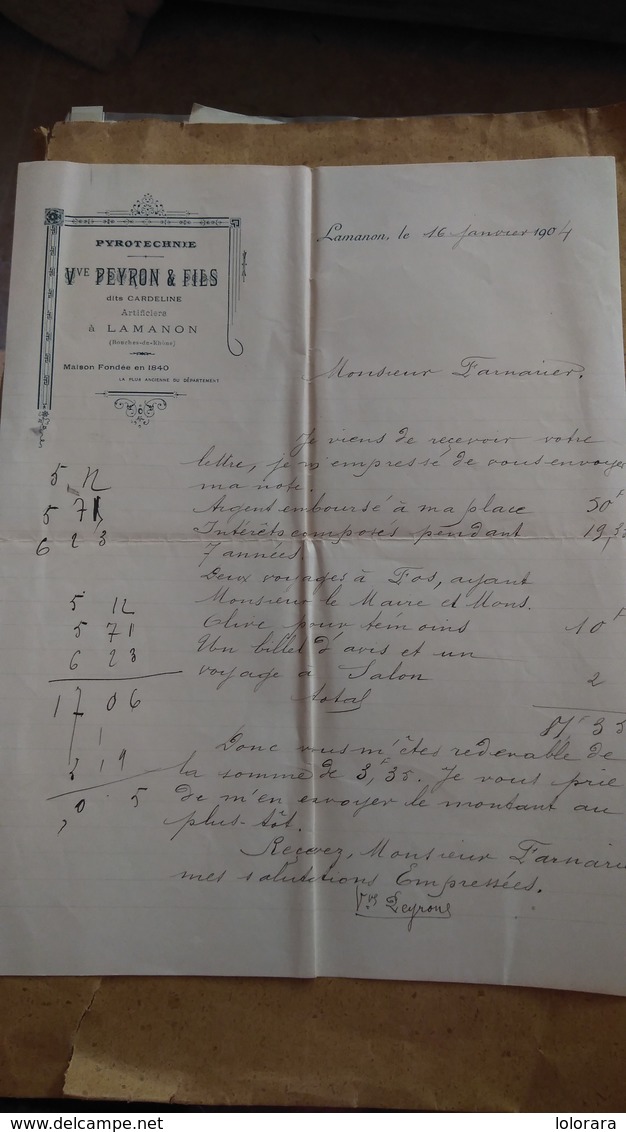 PYROTECHNIE
Vve PEYRON & FILS
dits CARDELINE
Artificiers
à LAMANON
(Bouches-du-Rhône)
Maison Fondée en 1840
LA PLUS ANCIENNE DU DÉPARTEMENT
Lamanon, le 16 Janvier 1904
Monsieur Farnarier,
Je viens de reçevoir votre
lettre, je m'empressé de vous envoyer
ma note.
Argent emboursé à ma place 50f
Intérêts composés pendant 19,35
7 années
Deux voyages à Fos, ayant
Monsieur le Maire et Mons.
Olive pour témoins 10f
Un billet d'avis et un
voyage à Salon 2
total
81f 35
Donc vous m'êtes redevable de
la somme de 3f,35. Je vous prie
de m'en envoyer le montant au
plus-tôt.
Reçevez, Monsieur Farnarier
mes salutations Empressées.
Vve Peyrons
5 12
5 71
6 23
5 12
5 71
6 23
1706
1
319
0 5
lolorara